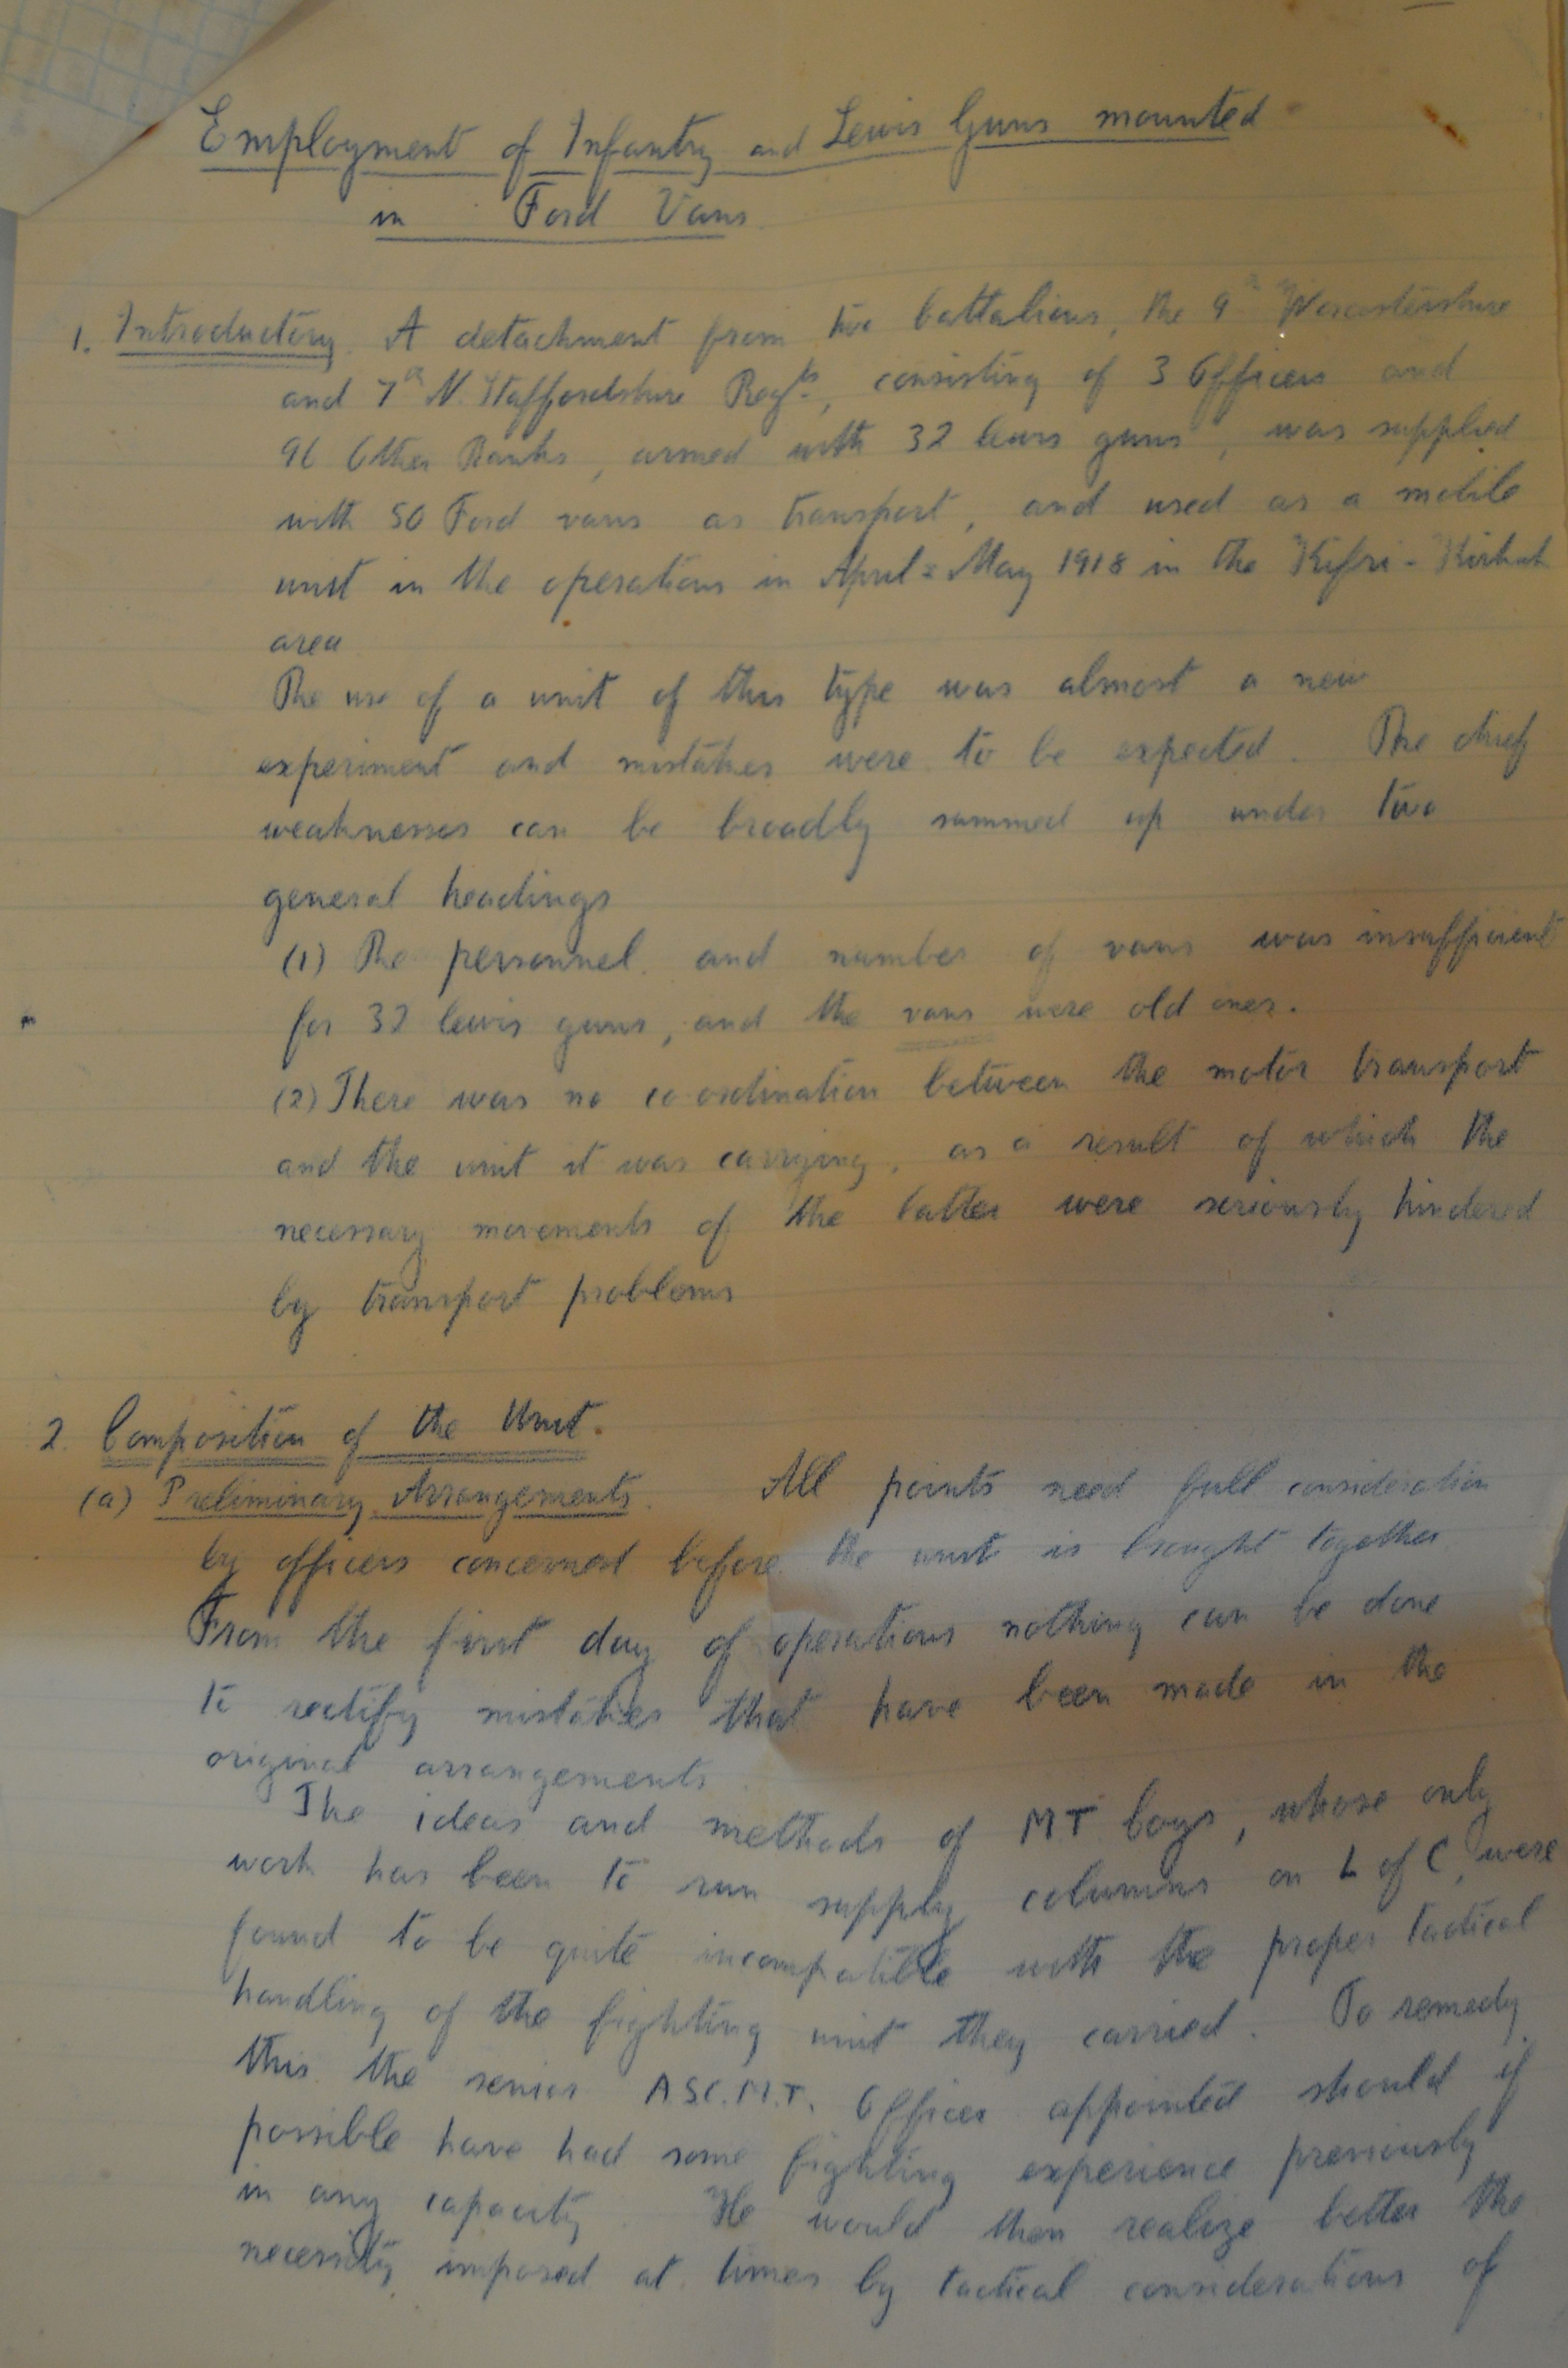 Employment of Infantry and Lewis Guns mounted
in Ford Vans.
1. Introductory. A detachment from two battalions, the 9th Worcestershire
and 7th N. Staffordshire Regts, consisting of 3 Officers and
96 Other Ranks, armed with 32 lewis guns, was supplied
with 50 Ford vans as transport, and used as a mobile
unit in the operations in April = May 1918 in the Kifri - Kirkuk
area
The use of a unit of this type was almost a new
experiment and mistakes were to be expected. The chief
weaknesses can be broadly summed up under two
general headings
(1) The personnel and number of vans was insufficient
for 32 lewis guns, and the vans were old ones.
(2) There was no coordination between the motor transport
and the unit it was carrying, as a result of which the
necessary movements of the latter were seriously hindered
by transport problems
2. Composition of the Unit.
(a) Preliminary Arrangements. All points need full consideration
by officers concerned before the unit is brought together
From the first day of operations nothing can be done
to rectify mistakes that have been made in the
original arrangements.
The ideas and methods of MT boys, whose only
work has been to run supply columns on L of C, were
found to be quite incompatible with the proper tactical
handling of the fighting unit they carried. To remedy
this the senior A.S.C.M.T. Officer appointed should if
possible have had some fighting experience previously
in any capacity. He would then realize better the
necessity imposed at times by tactical considerations of